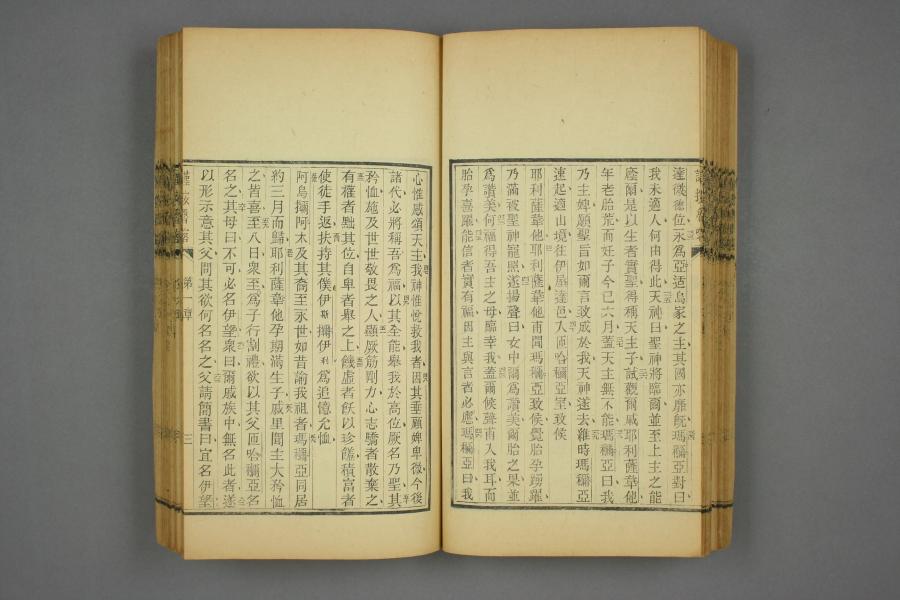 達微德位永為亞适烏家之主其國亦靡旣瑪穪亞對曰
我未適人何由得此天神曰聖神將臨爾並至上主之能
廕爾是以生者實聖得稱天主子試觀爾戚耶利薩韋他
年老胎荒而妊子今已六月蓋天主無不能瑪穪亞曰我
乃主婢願聖旨如爾言設成於我天神遂去維時瑪穪亞
速起適山境往伊屋達邑人匝哈穪亞室致候
耶利薩韋他耶利薩韋他甫聞瑪穪亞致候覺胎孕踴躍
乃滿被聖神寵照遂揚聲曰女中爾為讚美爾胎之果並
為讚美何福得吾主之母臨幸我蓋爾候聲甫入我耳而
胎孕喜躍能信者實有福因主與言者必應瑪穪亞曰我
心惟感頌天主我神惟悅救我者因其垂顧婢卑微今後
諸代必將稱吾為福以其全能舉我於高位厥名乃聖其
矜恤施及世世敬畏之人顯厥筋剛力心志驕者散棄之
有權者黜其位自卑者舉之上饑虛者飫以珍饈積富者
使徒手返扶持其僕伊斯攋伊利為追憶允恤
阿烏攋阿木及其裔至永世如昔諭我祖者瑪穪亞同居
約三月而歸耶利薩韋他孕期滿生子戚里聞主大矜恤
之皆喜至八日衆至為子行割禮欲以其父匝哈穪亞名
名之其母曰不可必名伊望衆曰爾戚族中無名此者遂
以形示意其父問其欲何名名之父請簡書曰宜名伊望
第一章
三